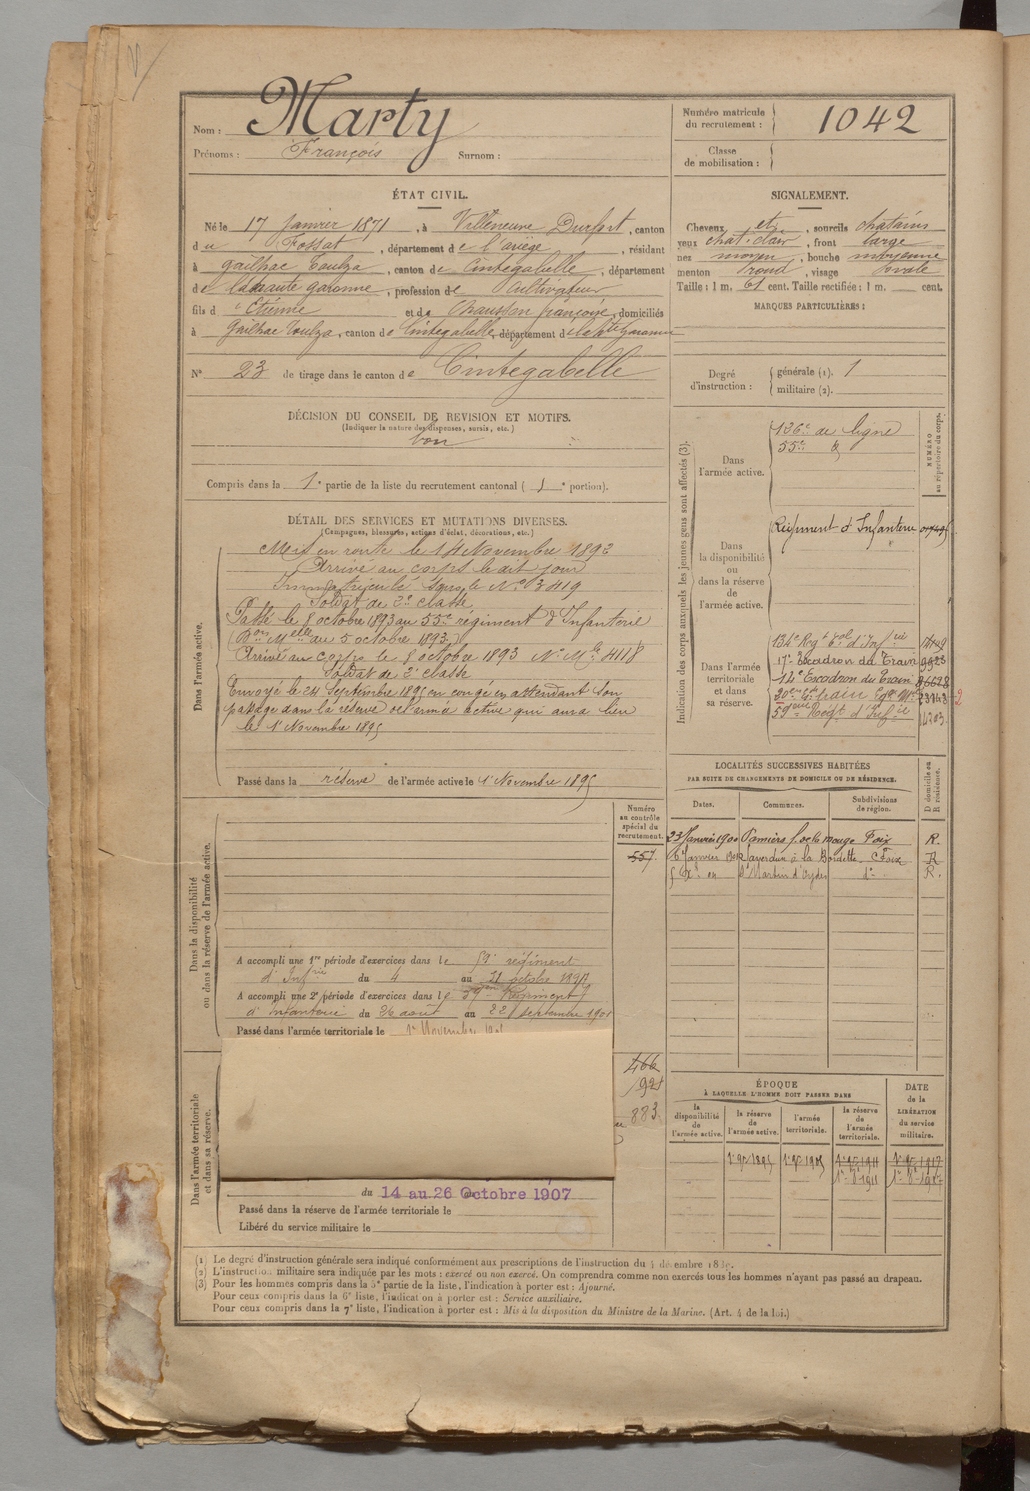 Nom : Marty
Prénoms : François Surnom :
Numéro matricule
du recrutement : 1042
Classe
de mobilisation :
ÉTAT CIVIL.
Né le 17 Janvier 1871, à Villeneuve Durfort, canton
du Fossat, département de l'ariège, résidant
à gailhac Toulza, canton de Cintegabelle, département
de la haute garonne, profession de Cultivateur
fils d' Etienne et de Chausson françoise, domiciliés
à Gailhac Toulza, canton de Cintegabelle, département de la hte Garonne
N° 23 de tirage dans le canton de Cintegabelle
SIGNALEMENT.
Cheveux et, sourcils chatains
yeux chat. clair, front large
nez moyen, bouche moyenne
menton rond, visage ovale
Taille : 1 m. 61 cent. Taille rectifiée : 1 m. cent.
MARQUES PARTICULIÈRES :
Degré
d'instruction :
générale (1). 1
militaire (2).
DÉCISION DU CONSEIL DE REVISION ET MOTIFS.
(Indiquer la nature des dispenses, sursis, etc.)
bon
Compris dans la 1e partie de la liste du recrutement cantonal ( 1e portion).
DÉTAIL DES SERVICES ET MUTATIONS DIVERSES.
(Campagnes, blessures, actions d'éclat, décorations, etc.)
Dans l'armée active.
Mis en route le 14 Novembre 1892
Arrivé au corps le dit jour
Immatriculé sous le N° 3419
Soldat de 2e classe
Passé le 8 octobre 1893 au 55e régiment d'Infanterie
(Don Melle du 5 octobre 1893)
Arrivé au corps le 8 octobre 1893 N° Mle 4118
Soldat de 2e classe
Envoyé le 24 Septembre 1895 en congé en attendant son
passage dans la réserve de l'armée active qui aura lieu
le 1r Novembre 1895
Passé dans la réserve de l'armée active le 1r Novembre 1895
Indication des corps auxquels les jeunes gens sont affectés (3).
NUMÉRO
au répertoire du corps.
Dans
l'armée active.
126e de ligne
55e d°
Dans
la disponibilité
ou
dans la réserve
de
l'armée active.
Régiment d'Infanterie
Dans l'armée
territoriale
et dans
sa réserve.
134e Regt Tal d'Infie
17e Escadron du Train
14e Escadron du Train
59eme Régt d'Infie 14203
LOCALITÉS SUCCESSIVES HABITÉES
PAR SUITE DE CHANGEMENTS DE DOMICILE OU DE RÉSIDENCE.
D domicile ou
R résidence.
Dates. Communes. Subdivisions
de région.
23 Janvier 1900 Pamiers Foix R.
6 Janvier Saverdun à la Bordette Foix R
St Martin d'Oydes d° R.
Numéro
au contrôle
spécial du
recrutement.
557
Dans la disponibilité
ou dans la réserve de l'armée active.
A accompli une 1re période d'exercices dans le 59e régiment
d'Infrie du 4 au 31 octobre
A accompli une 2e période d'exercices dans le 59e Régiment
d'Infanterie du 26 août au 22 septembre 1901
Passé dans l'armée territoriale le 1r Novembre
Dans l'armée territoriale
et dans sa réserve.
466
921
883
du 14 au 26 Octobre 1907
Passé dans la réserve de l'armée territoriale le
Libéré du service militaire le
ÉPOQUE
À LAQUELLE L'HOMME DOIT PASSER DANS
DATE
de la
LIBÉRATION
du service
militaire.
la
disponibilité
de
l'armée active.
la réserve
de
l'armée active.
l'armée
territoriale.
la réserve
de
l'armée
territoriale.
1r 9e 1895 1r 9e 1905 1r 9e 1911 1r 9e 1917
(1) Le degré d'instruction générale sera indiqué conformément aux prescriptions de l'instruction du 4 décembre
(2) L'instruction militaire sera indiquée par les mots : exercé ou non exercé. On comprendra comme non exercés tous les hommes n'ayant pas passé au drapeau.
(3) Pour les hommes compris dans la 5e partie de la liste, l'indication à porter est : Ajourné.
Pour ceux compris dans la 6e liste, l'indication à porter est : Service auxiliaire.
Pour ceux compris dans la 7e liste, l'indication à porter est : Mis à la disposition du Ministre de la Marine. (Art. 4 de la loi.)